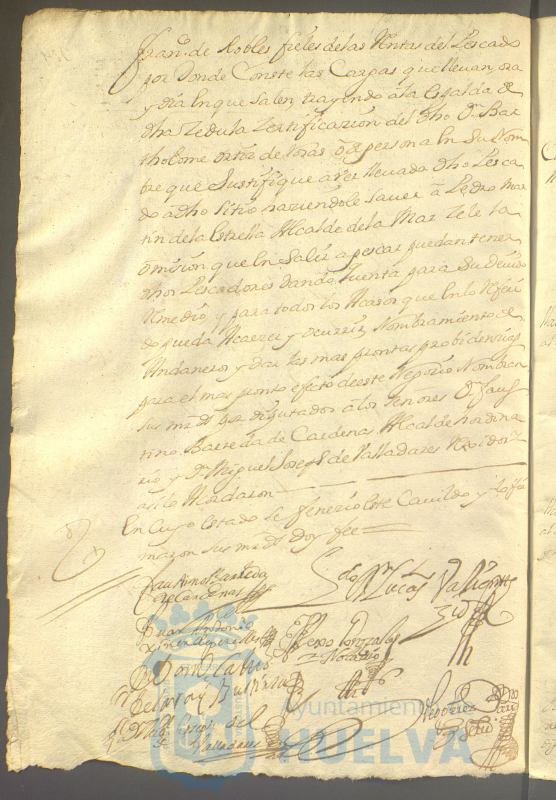 Fran.co de Robles fieles de las Ventas del Pescado
por donde Conste las Cargas que llevan, ora
y dia en que salen trayendo a la
dha Zedula Zertificazion del dho Dn Bar
tholome ortiz de persona en su Nom
bre que Justifique aver llevado dho Pesca
do a dho sitio haziendole saver a Pedro Mar
tin de la Estrella Alcalde de la Mar Zele la
omision que en salir a pescar puedan tener
dhos Pescadores dando quenta para su devido
Remedio, y para todos los Acasos que en lo Referi
do pueda Acaezer y ocurrir, Nombramiento de
Andaneros y dar las mas promptas probidenzias
para el mas prompto efecto de este Negozio Nombran
sus mrds por diputados a los señores Dn Faus
tino Barreda de Cardenas Alcalde hordina
rio y Dn Miguel Joseph de Valladares Rexidor
asi lo Acordaron
En Cuyo estado se fenezio este Cavildo y lo fir
maron sus mrds doy fee
Faustino Barreda
de Cardenas
Lucas
Juan Antonio
Pedro Gonzales
Notario
Valladares
Ayuntamiento
HUELVA